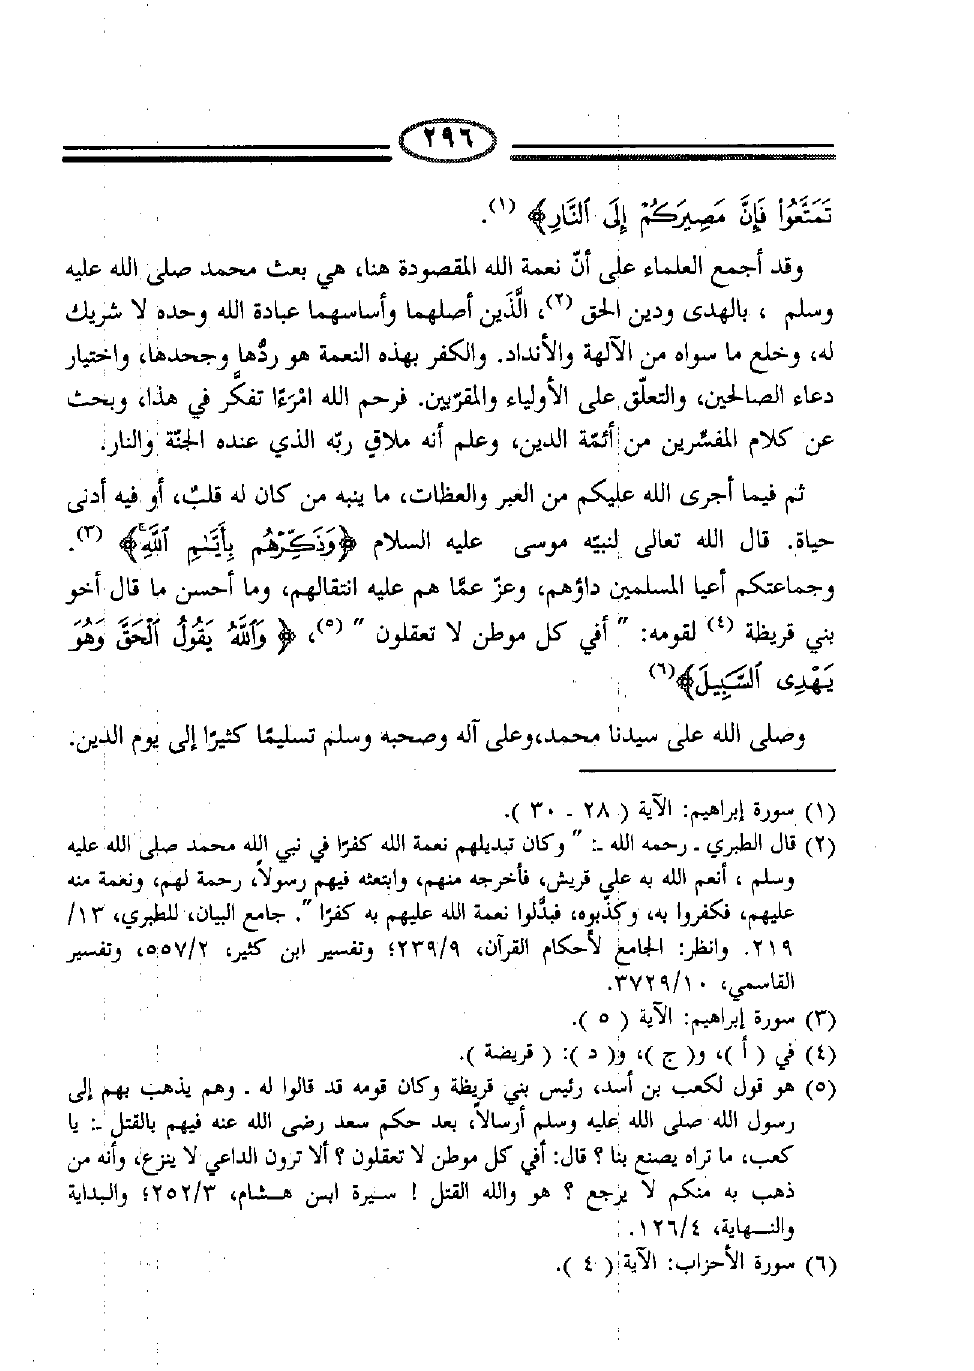 ٢٩٦
تَمَتَّعُوا۟ فَإِنَّ مَصِيرَكُمْ إِلَى ٱلنَّارِ﴾ (١).
وقد أجمع العلماء على أنّ نعمة الله المقصودة هنا، هي بعث محمد صلى الله عليه
وسلم ، بالهدى ودين الحق (٢)، الَّذَين أصلهما وأساسهما عبادة الله وحده لا شريك
له، وخلع ما سواه من الآلهة والأنداد. والكفر بهذه النعمة هو ردُّها وجحدها، واختيار
دعاء الصالحين، والتعلّق على الأولياء والمقرّبين. فرحم الله امْرَءًا تفكَّر في هذا، وبحث
عن كلام المفسِّرين من أئمّة الدين، وعلم أنه ملاقٍ ربّه الذي عنده الجنّة والنار.
ثم فيما أجرى الله عليكم من العبر والعظات، ما ينبه من كان له قلبٌ، أو فيه أدنى
حياة. قال الله تعالى لنبيّه موسى عليه السلام ﴿وَذَكِّرْهُم بِأَيَّىٰمِ ٱللَّهِ﴾ (٣).
وجماعتكم أعيا المسلمين داؤهم، وعزّ عمَّا هم عليه انتقالهم، وما أحسن ما قال أخو
بني قريظة (٤) لقومه: " أفي كل موطن لا تعقلون " (٥)، ﴿ وَٱللَّهُ يَقُولُ ٱلْحَقَّ وَهُوَ
يَهْدِى ٱلسَّبِيلَ﴾(٦)
وصلى الله على سيدنا محمد،وعلى آله وصحبه وسلم تسليمًا كثيرًا إلى يوم الدين.
(١) سورة إبراهيم: الآية ( ٢٨ ـ ٣٠ ).
(٢) قال الطبري ـ رحمه الله ـ: " وكان تبديلهم نعمة الله كفرًا في نبي الله محمد صلى الله عليه
وسلم ، أنعم الله به على قريش، فأخرجه منهم، وابتعثه فيهم رسولاً، رحمة لهم، ونعمة منه
عليهم، فكفروا به، وكذّبوه، فبدَّلوا نعمة الله عليهم به كفرًا ". جامع البيان، للطبري، ١٣/
٢١٩. وانظر: الجامع لأحكام القرآن، ٢٣٩/٩؛ وتفسير ابن كثير، ٥٥٧/٢، وتفسير
القاسمي، ٣٧٢٩/١٠.
(٣) سورة إبراهيم: الآية ( ٥ ).
(٤) في ( أ )، و( ج )، و( د ): ( قريضة ).
(٥) هو قول لكعب بن أسد، رئيس بني قريظة وكان قومه قد قالوا له ـ وهم يذهب بهم إلى
رسول الله صلى الله عليه وسلم أرسالاً، بعد حكم سعد رضى الله عنه فيهم بالقتل ـ: يا
كعب، ما تراه يصنع بنا ؟ قال: أفي كل موطن لا تعقلون ؟ ألا ترون الداعي لا ينزع، وأنه من
ذهب به منكم لا يرجع ؟ هو والله القتل ! سيرة ابن هشام، ٢٥٢/٣؛ والبداية
والنهاية، ١٢٦/٤.
(٦) سورة الأحزاب: الآية ( ٤ ).